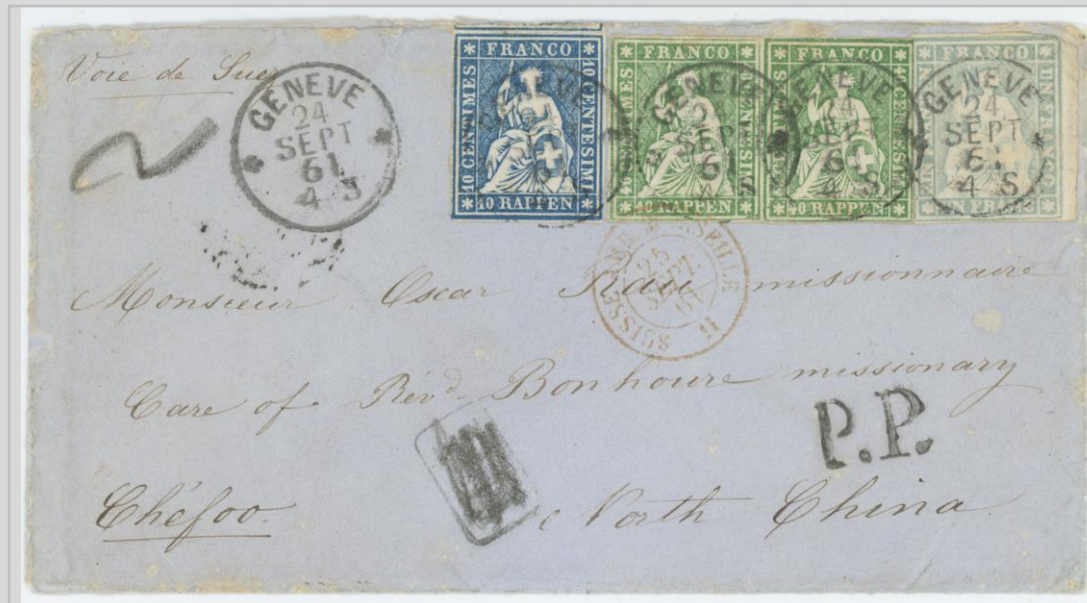 Voie de Suez
GENEVE
24
SEPT
61
4 S
FRANCO
10 CENTIMES
10 CENTESIMI
10 RAPPEN
FRANCO
40 RAPPEN
FRANCO
40 RAPPEN
UN FRANC
GENEVE
SEPT
61
4 S
GENEVE
24
SEPT
61
4 S
SUISSE MARSEILLE
25
SEPT.
61
Monsieur Oscar Rau missionnaire
Care of Révd Bonhoure missionary
P.P.
Chéfoo.
North China